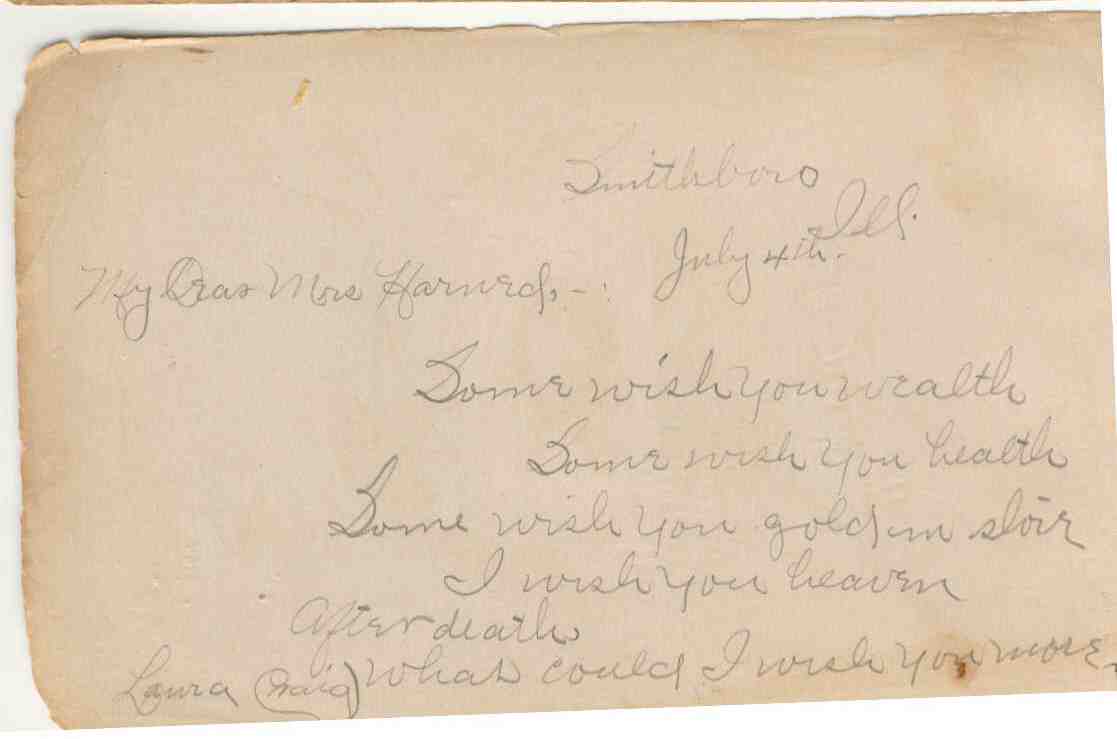 Smithboro
Ill.
July 4th.
My Dear Mrs Harned,-:
Some wish you wealth
Some wish you health
Some wish you gold in stoir
I wish you heaven
After death
What could I wish you more-
Laura Craig